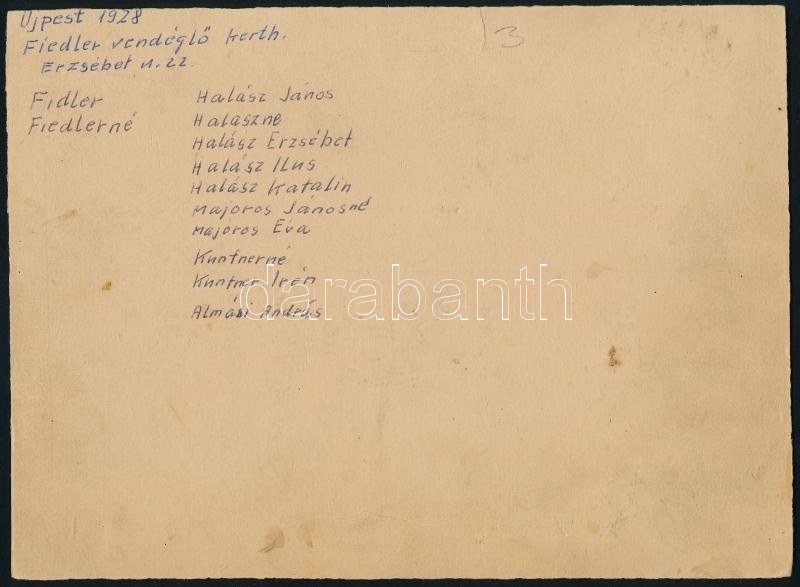 Ujpest 1928
Fiedler vendéglő kerth.
Erzsébet u. 22.
3
Fidler
Fiedlerné
Halász János
Halászne
Halász Erzsébet
Halász Ilus
Halász Katalin
Majoros Jánosné
Majoros Éva
Kuntnerné
Kuntner Irén
Almási András
darabanth